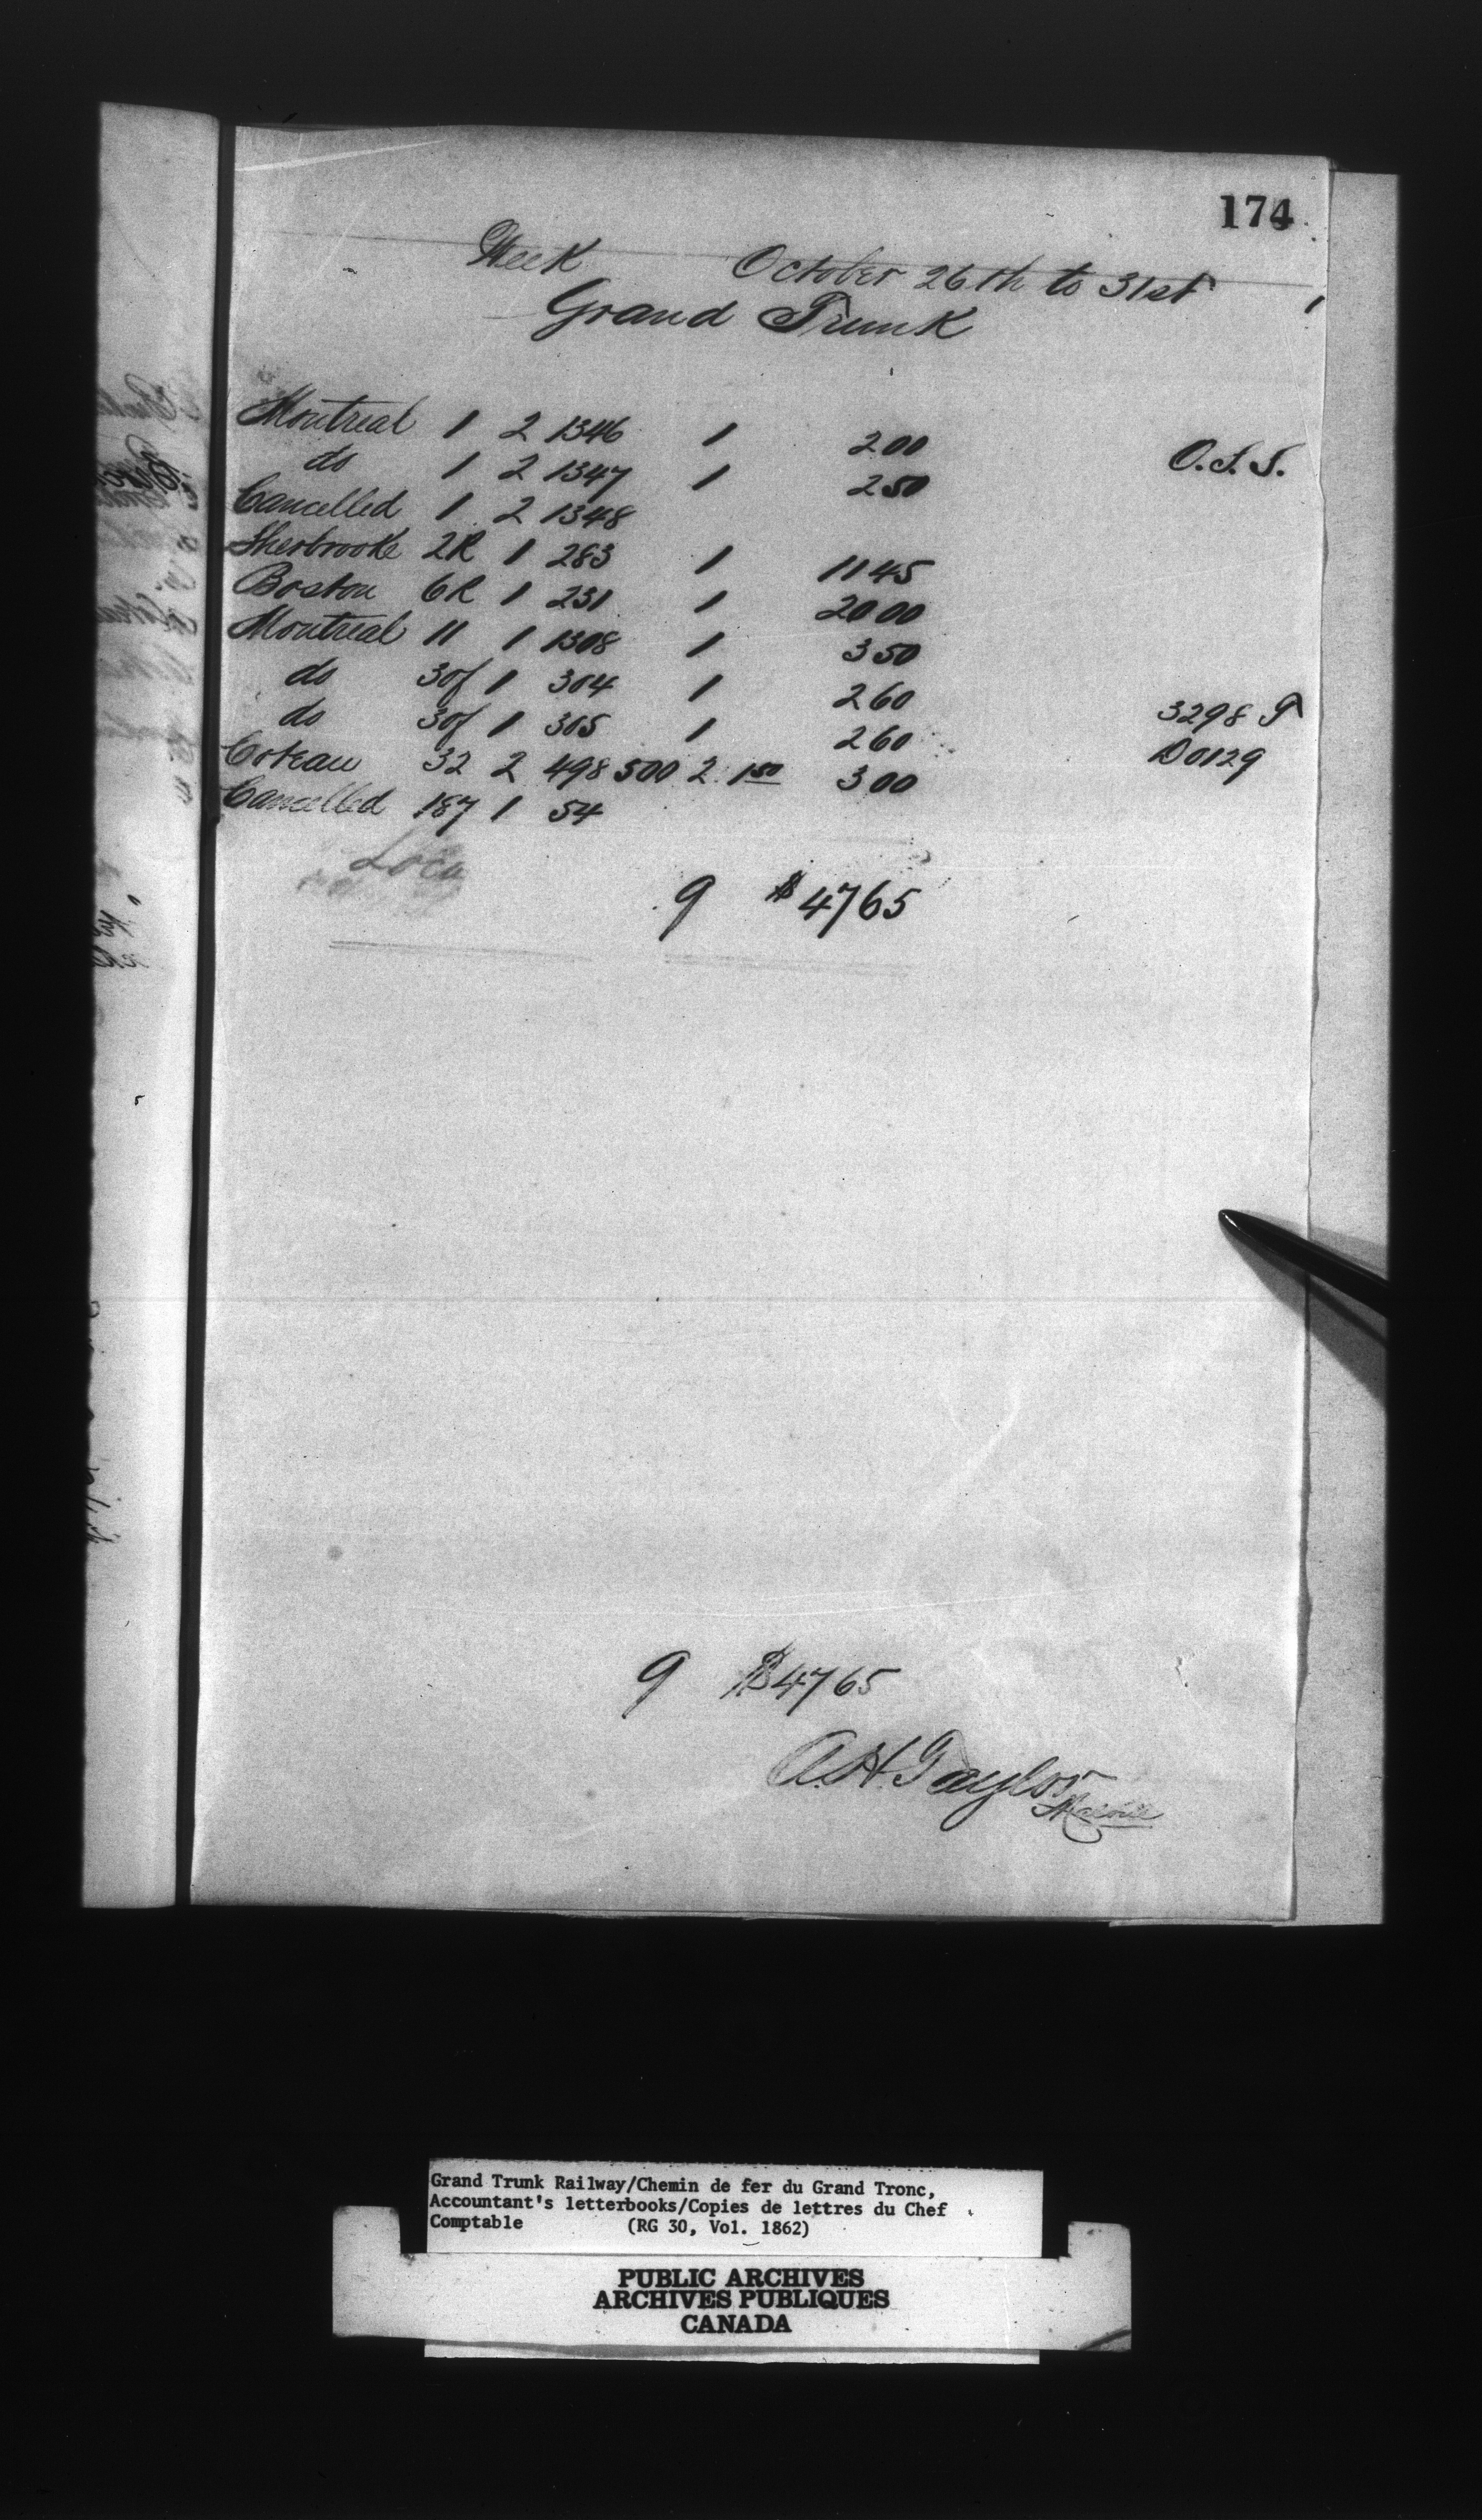 174
Week October 26th to 31st
Grand Trunk
Montreal 1 2 1346 1 2 00 O.S.S.
do 1 2 1347 1 2 50
Cancelled 1 2 1348
Sherbrooke 2R 1 283 1 11 45
Boston 6R 1 231 1 20 00
Montreal 11 1 1308 1 3 50
do 30f 1 304 1 2 60 3298 9
do 30f 1 305 1 2 60 D0129
Coteau 32 2 498 500 2 1 50 3 00
Cancelled 187 1 54
Loca
9 $ 47 65
9 $ 47 65
A. H. Taylor
Grand Trunk Railway/Chemin de fer du Grand Tronc,
Accountant's letterbooks/Copies de lettres du Chef
Comptable (RG 30, Vol. 1862)
PUBLIC ARCHIVES
ARCHIVES PUBLIQUES
CANADA